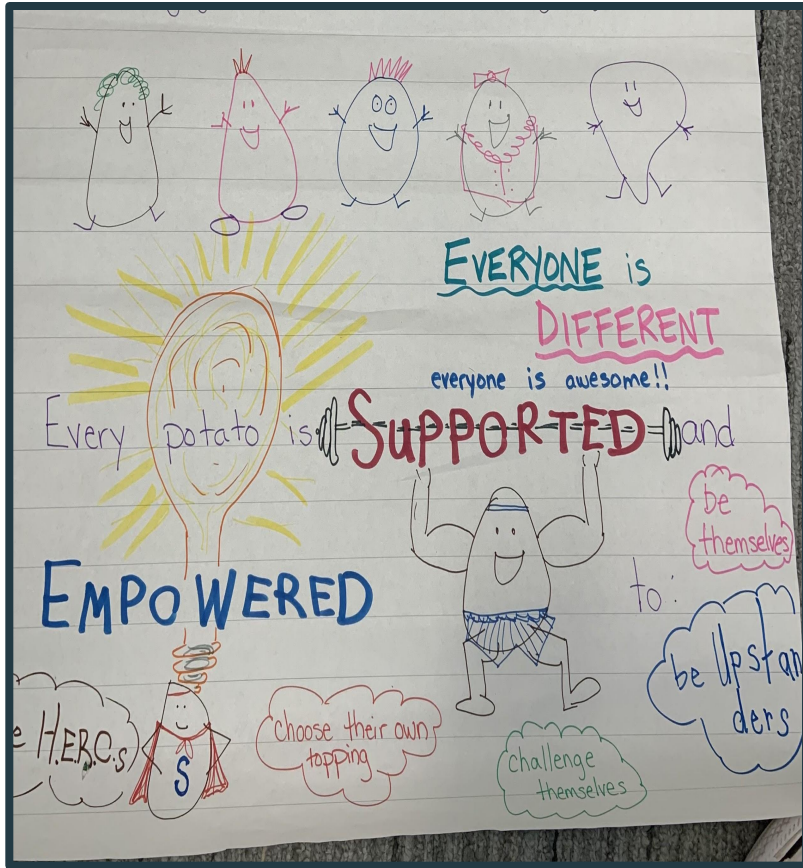 EVERYONE is
DIFFERENT
everyone is awesome!!
Every potato is SUPPORTED and
EMPOWERED to:
be
themselves
be Upstan
ders
H.E.R.O.s
S
choose their own
topping
challenge
themselves